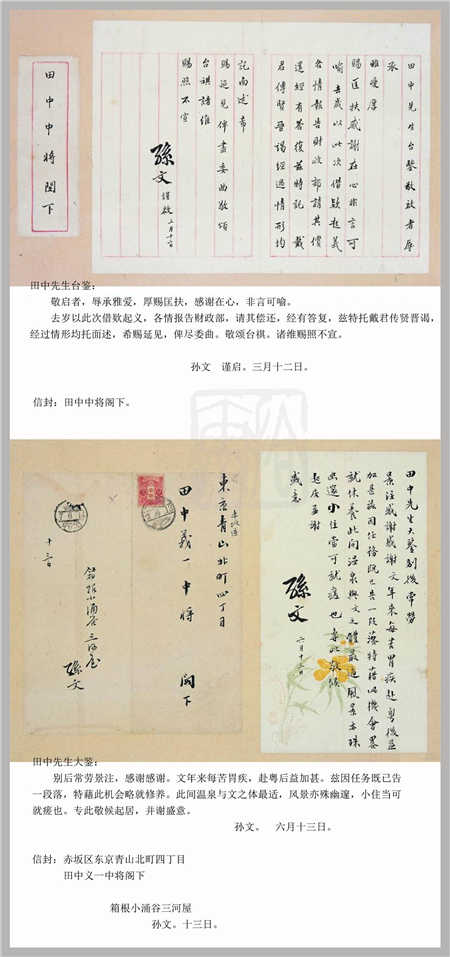 田中中將閣下
田中先生台鑒敬啟者辱
承
雅愛厚
賜匡扶感謝在心非言可
喻去歲以此次借欵起義
各情報告財政部請其償
還經有答復茲特託戴
君傳賢晉謁經過情形均
託面述希
賜延見俾盡委曲敬頌
台祺諸維
賜照不宣
孫文 謹啟 三月十二日
田中先生台鉴:
敬启者,辱承雅爱,厚赐匡扶,感谢在心,非言可喻。
去岁以此次借欵起义,各情报告财政部,请其偿还,经有答复,兹特托戴君传贤晋谒,
经过情形均托面述,希赐延见,俾尽委曲。敬颂台祺。诸维赐照不宣。
孙文 谨启。三月十二日。
信封:田中中将阁下。
赤坂區
東京青山北町四丁目
田中義一中將 閣下
箱根小涌谷三河屋
孫文
十三日
田中先生大鑒別後常勞
景注感謝感謝文年來每苦胃疾赴粵後益
加甚茲因任務既已告一段落特藉此機會畧
就休養此間溫泉與文之體最適風景亦殊
幽邃小住當可就痊也專此敬候
起居並謝
盛意
孫文
六月十三日
田中先生大鉴:
别后常劳景注,感谢感谢。文年来每苦胃疾,赴粤后益加甚。兹因任务既已告
一段落,特藉此机会略就修养。此间温泉与文之体最适,风景亦殊幽邃,小住当可
就痊也。专此敬候起居,并谢盛意。
孙文。 六月十三日。
信封:赤坂区东京青山北町四丁目
田中义一中将阁下
箱根小涌谷三河屋
孙文。十三日。